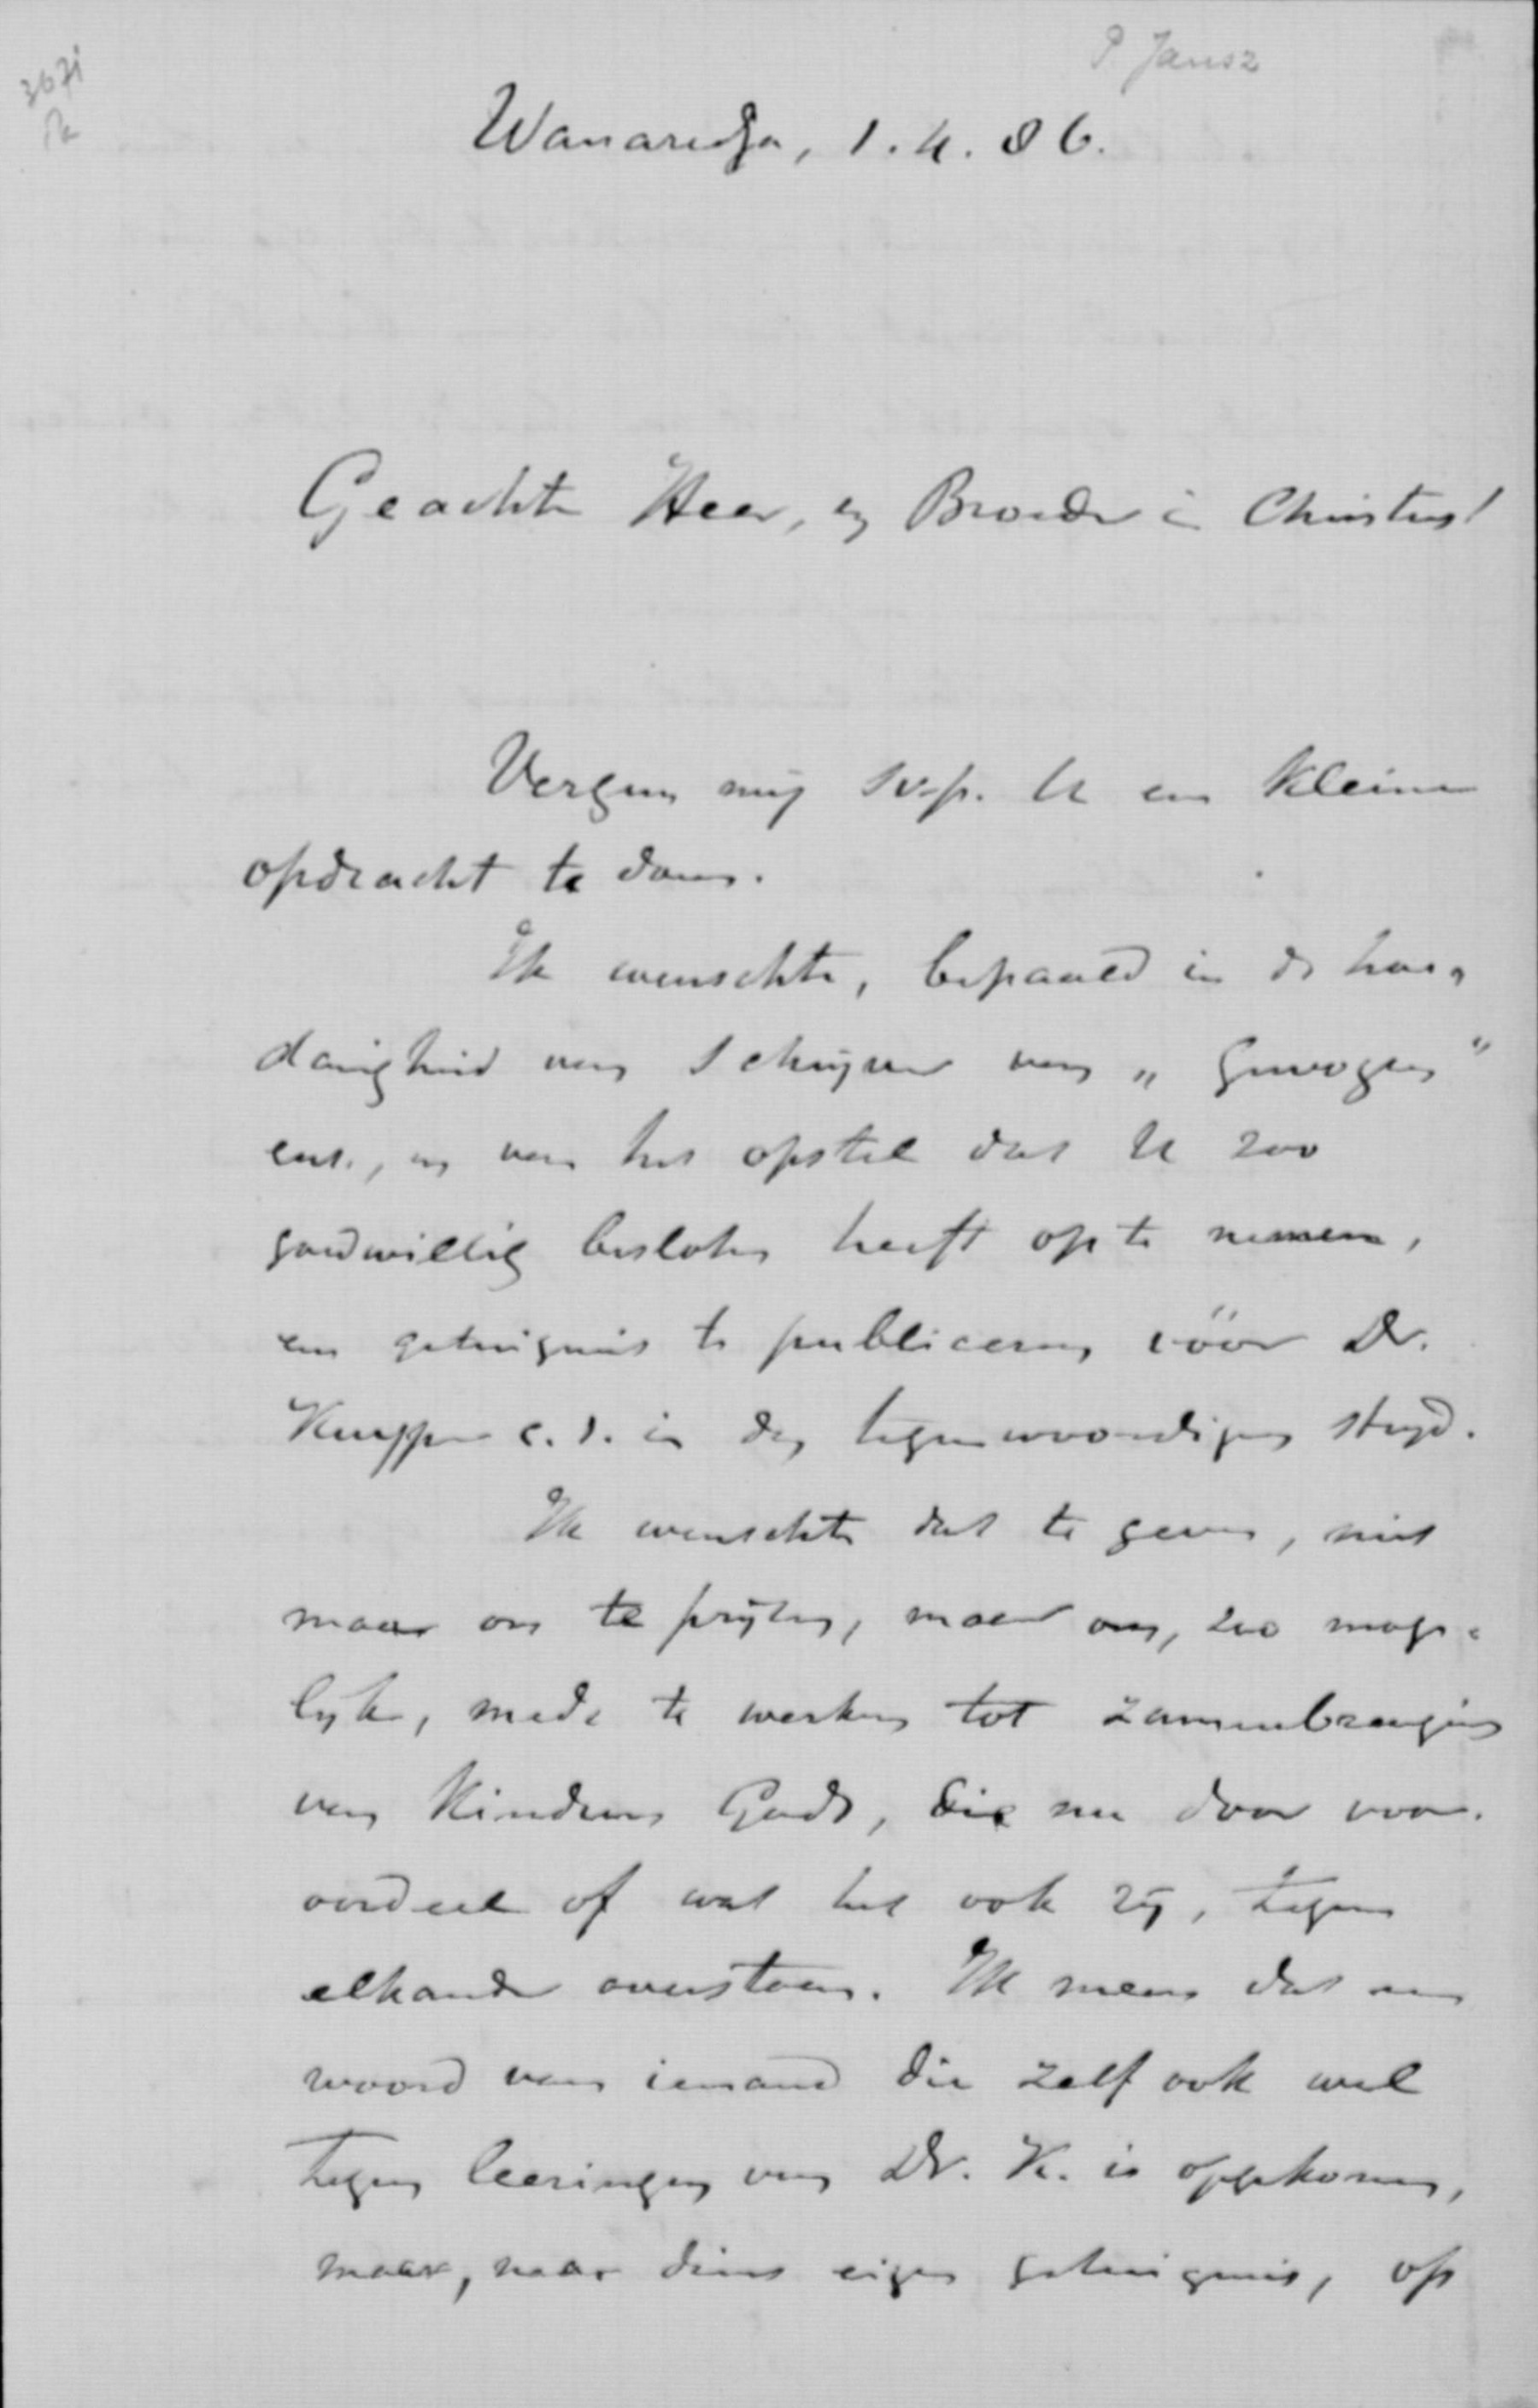 P. Jansz
3671
Wanaredja, 1.4.86.
Geachte Heer, en Broeder in Christus!
Vergun mij s.v.p. U een kleine
opdracht te doen.
Ik wenschte, bepaald in de hoe,
danigheid van Schrijver van „Gewogen"
enz., en van het opstel dat U zoo
goedwillig besloten heeft op te nemen,
een getuigenis te publiceren vóór Dr.
Kuyper c.s. in den tegenwoordigen strijd.
Ik wenschte dat te geven, niet
maar om te prijzen, maar om, zoo moge-
lijk, mede te werken tot zamenbrenging
van kinderen Gods, die nu door voor-
oordeel of wat het ook zij, tegen
elkander overstaan. Ik meen dat een
woord van iemand die zelf ook wel
tegen leeringen van Dr. K. is opgekomen,
maar, naar diens eigen getuigenis, op